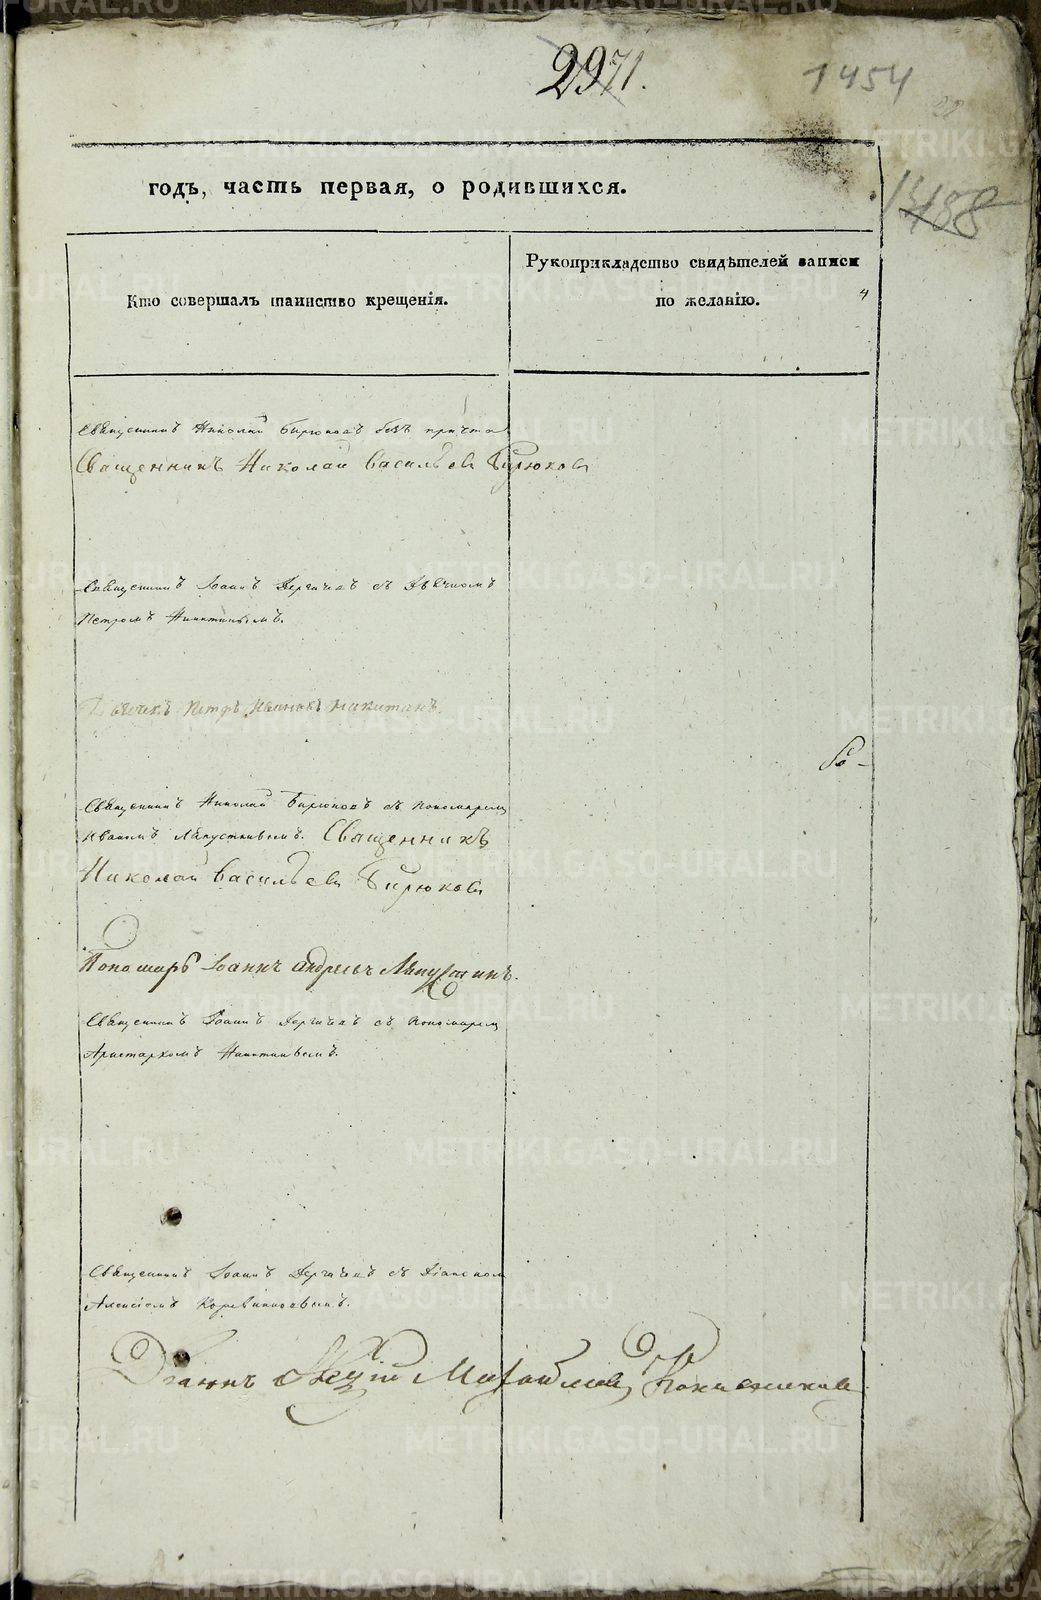 2971.
1454
годъ, часть первая, о родившихся.
1488
Кто совершалъ таинство крещенія.
Рукоприкладство свидѣтелей записи
по желанію.
Священникъ Николай Бирюковъ безъ причта
Священникъ Николай Васильевъ Бирюковъ
Священникъ Іоаннъ Дергачевъ съ Дьячкомъ
Петромъ Никитинымъ.
Дьячекъ Петръ Ивановъ Никитинъ.
Священникъ Николай Бирюковъ съ Пономаремъ
Иваномъ Лапустинымъ. Священникъ
Николай Васильевъ Бирюковъ
Пономарь Іоаннъ Андреевъ Лапустинъ.
Священникъ Іоаннъ Дергачевъ съ Пономаремъ
Аристархомъ Никитинымъ.
Священникъ Іоаннъ Дергачевъ съ Діакономъ
Алексіемъ
Діаконъ Алексій Михайловъ
METRIKI.GASO-URAL.RU